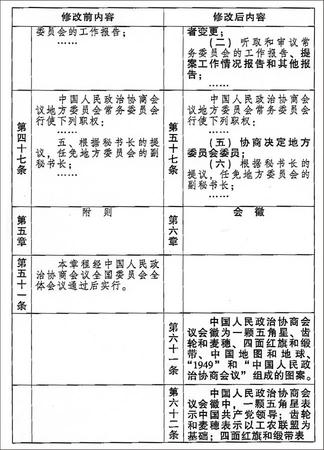 修改前内容
修改后内容
委员会的工作报告；
……
者变更；
（二）听取和审议常
务委员会的工作报告、提
案工作情况报告和其他报
告；
……
第四十七条
中国人民政治协商会
议地方委员会常务委员会
行使下列职权：
……
五、根据秘书长的提
议，任免地方委员会的副
秘书长；
……
第五十七条
中国人民政治协商会
议地方委员会常务委员会
行使下列职权：
……
（五）协商决定地方
委员会委员；
（六）根据秘书长的
提议，任免地方委员会的
副秘书长；
……
第五章
附则
第六章
会徽
第五十一条
本章程经中国人民政
治协商会议全国委员会全
体会议通过后实行。
第六十一条
中国人民政治协商会
议会徽为一颗五角星、齿
轮和麦穗、四面红旗和缎
带、中国地图和地球、
“1949”和“中国人民政
治协商会议”组成的图案。
第六十二条
中国人民政治协商会
议会徽中，一颗五角星表
示中国共产党领导；齿轮
和麦穗表示以工农联盟为
基础；四面红旗和缎带表